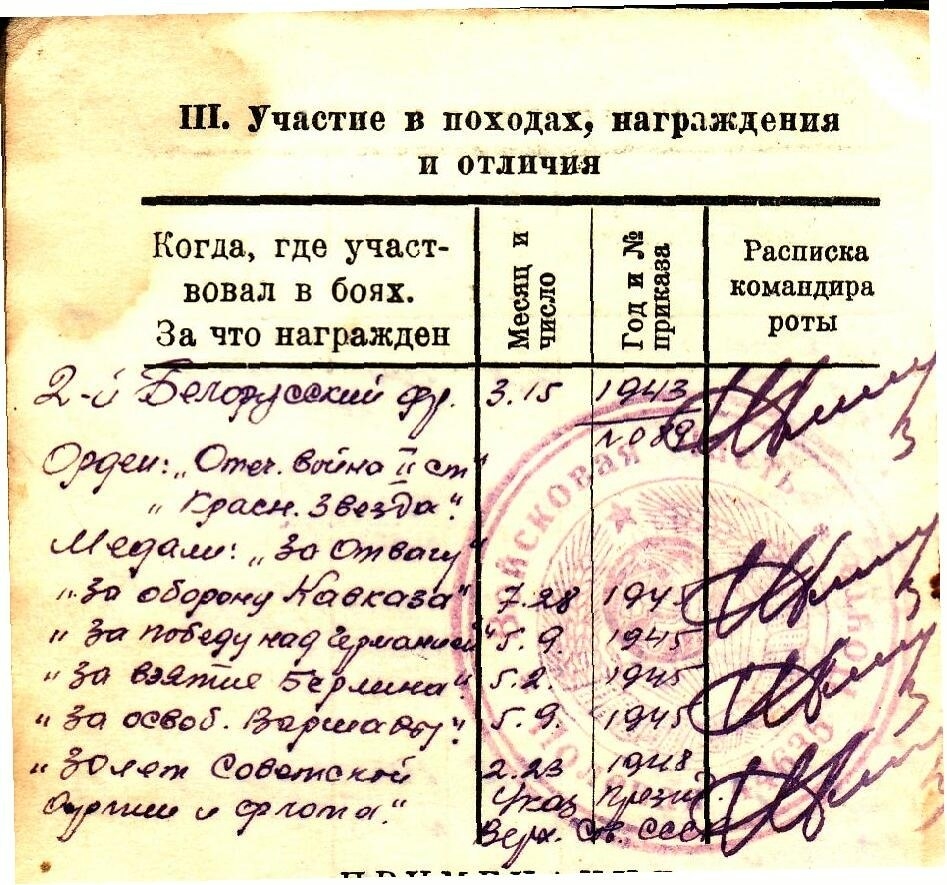 III. Участие в походах, награждения
и отличия
Когда, где участ-
вовал в боях.
За что награжден
Месяц и
число
Год и №
приказа
Расписка
командира
роты
2-й Белорусский фр. 3.15 1943
№ 089
Орден: „Отеч. война II ст“
„Красн. Звезда“.
Медали: „За Отвагу“
„За оборону Кавказа“ 7.28 1945
„За победу над Германией“ 5.9. 1945
„За взятие Берлина“. 5.2. 1945
„За освоб. Варшавы“. 5.9. 1945
„30 лет Советской 2.23 1948
Армии и флота“. Указ През.
Верх. Св. СССР
Войсковая часть
ПРИМЕЧАНИЯ